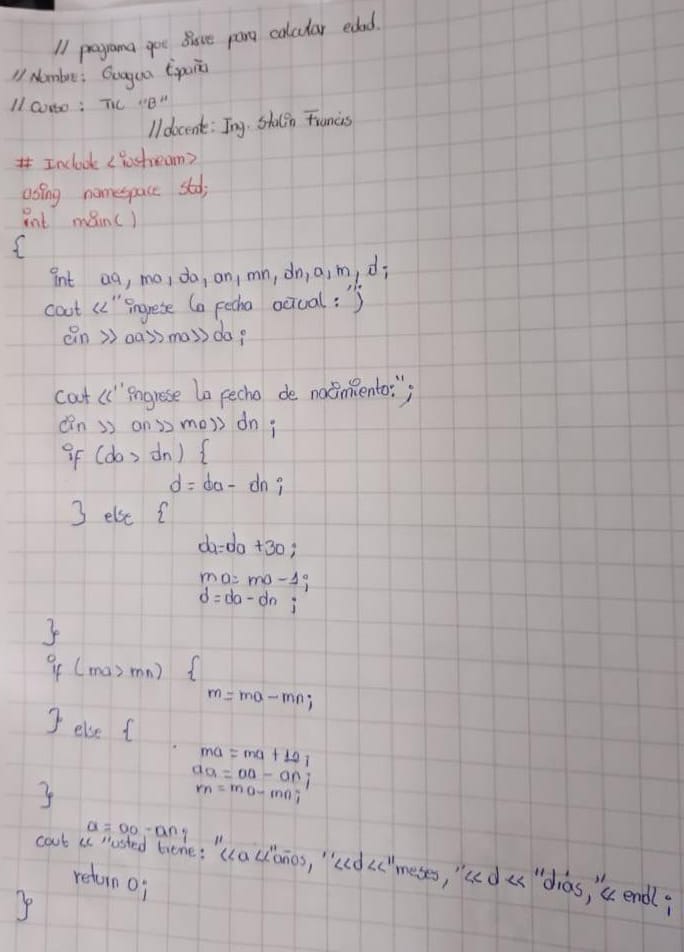 // programa que sirve para calcular edad.
// Nombre: Guagua España
// Curso : TIC "B"
// docente: Ing. Stalin Francis
# Include <iostream>
using namespace std;
int main()
{
int aa, ma, da, an, mn, dn, a, m, d;
cout <<"ingrese la fecha actual : ";
cin >> aa>>ma>>da;
cout <<"ingrese la fecha de nacimiento:";
cin >> an>>mo>> dn ;
if (da> dn) {
d = da - dn ;
} else {
da=da +30 ;
ma= ma -1;
d = da - dn ;
}
if (ma> mn) {
m = ma - mn;
} else {
ma = ma + 12;
aa = aa - an;
m = ma- mn;
}
a = aa -an;
cout << "usted tiene: "<<a<<"años, "<<d<<"meses, "<< d << "días, "<< endl ;
return 0;
}